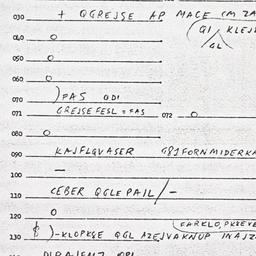 030 + OGREJSE AP MACE CM ZA
(GI KLEJ
GL
040 O
050 O
060 O
070 )FAS ODI
071 GREJSEFESL = FAS 072 O
080 O
090 KAJFLGVASER G81FORNMIDERKA
100 —
110 CEBER QGLEPAIL/-
120 O
(EARKLO,PKREVE
130 )-KLOPKGE QGL AZEJVAKNUP INAJZ